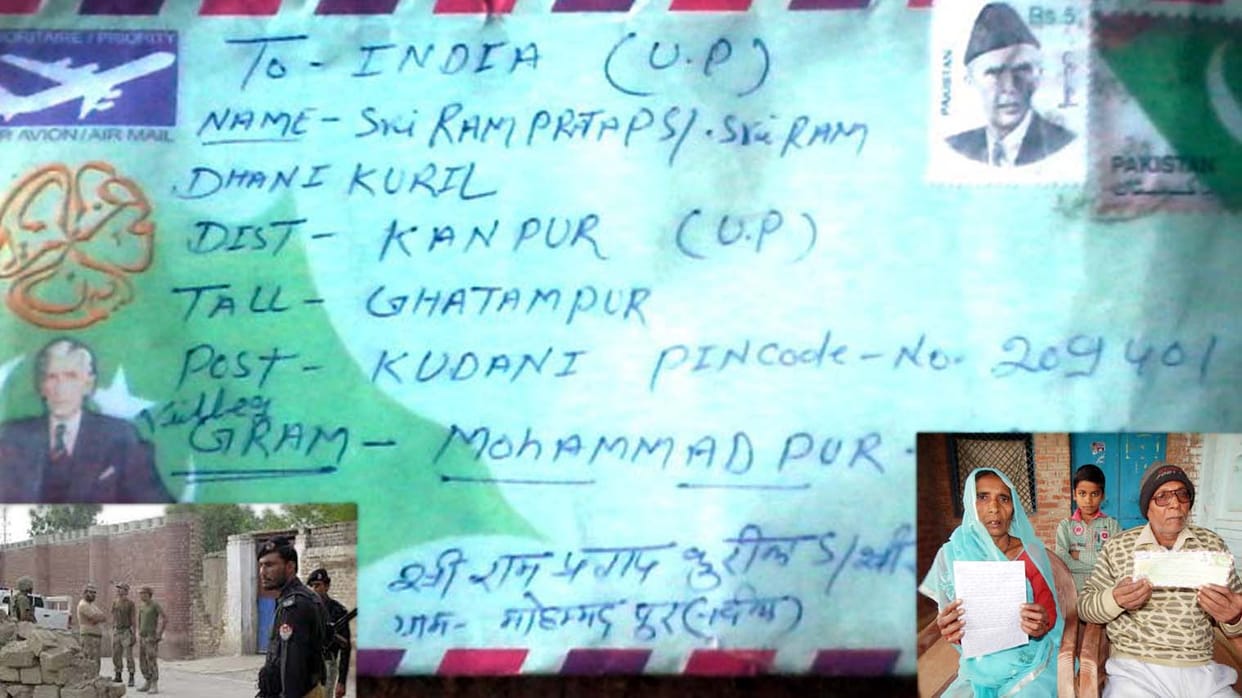 PRIORITAIRE / PRIORITY
PAR AVION/AIR MAIL
To - INDIA (U.P)
Rs.5
PAKISTAN
NAME - Sri RAM PRATAP S/. Sri RAM
DHANI KURIL
PAKISTAN
پاکستان
DIST - KANPUR (U.P)
TALL - GHATAMPUR
POST - KUDANI PINCode - No. 209401
Villeg
GRAM - MOhAMMAD PUR
श्री राम प्रताप कुरील S/ श्री
ग्राम - मोहम्मद पुर